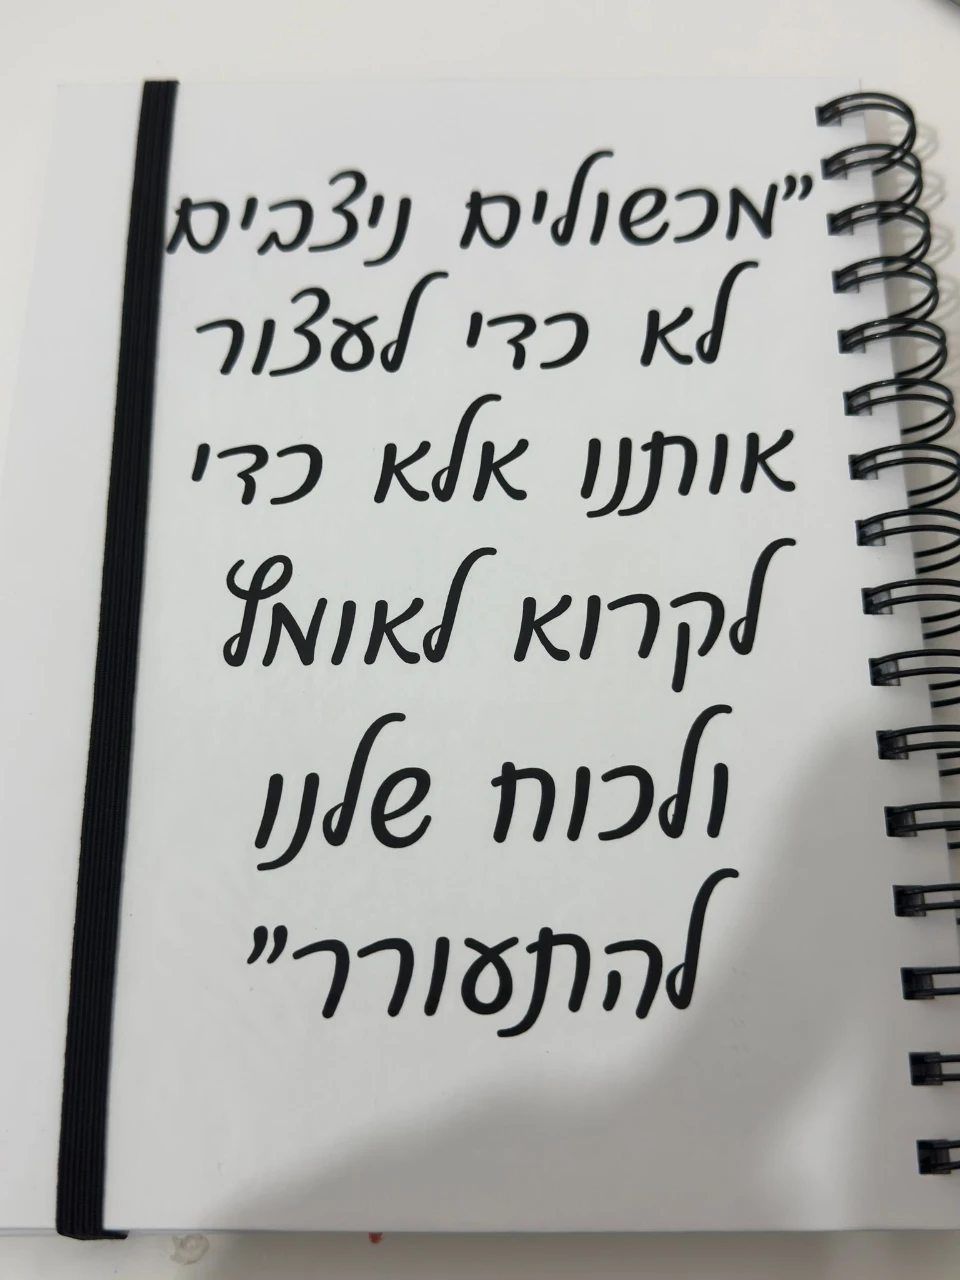 "מכשולים ניצבים
לא כדי לעצור
אותנו אלא כדי
לקרוא לאומץ
ולכוח שלנו
להתעורר"